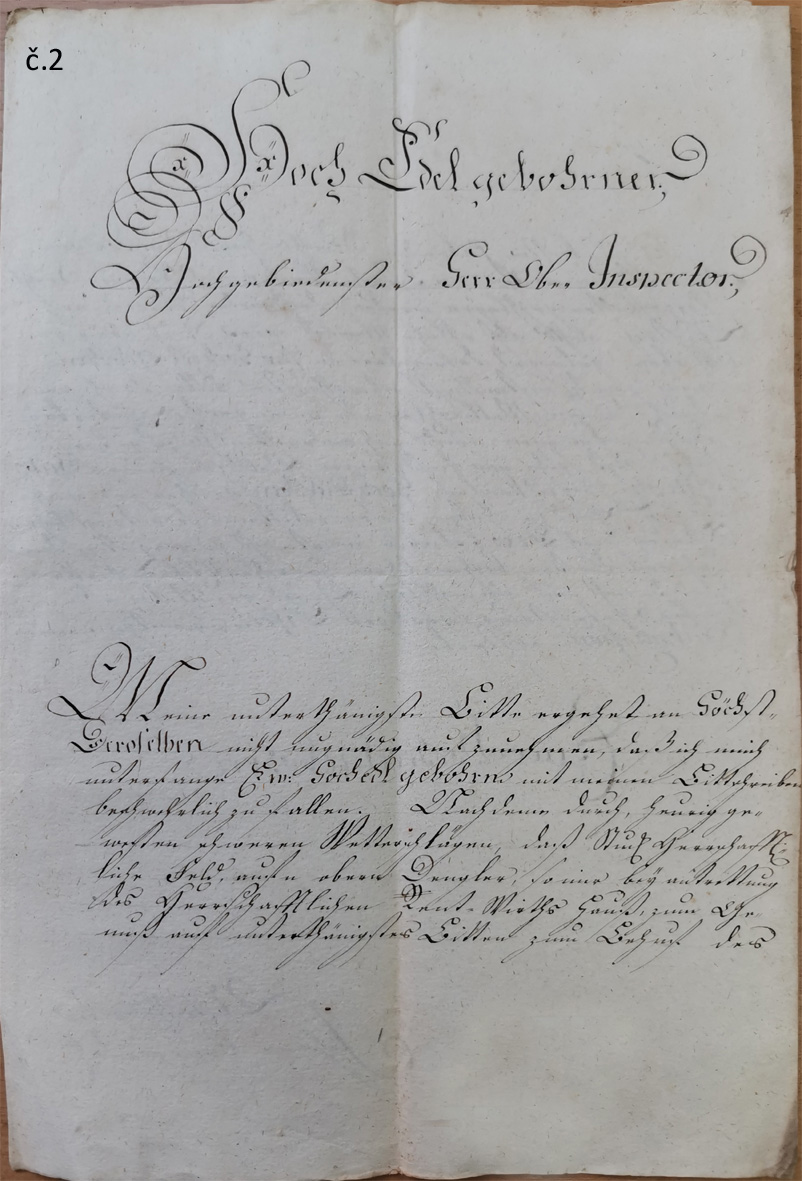 č.2
Hoch Edl gebohrner,
Hochgebiedenster Herr Ober Inspector,
Meine unterthänigste Bitte ergehet an Höchst-
Deroselben nicht ungnädig aufzunehmen, daß ich mich
unterfange Eur: Hochedl gebohrn mit meinen Bittschreiben
beschwehrlich zu fallen. Nachdeme durch, heurig ge-
westen schweren Wetterschlägen, daß Stuk Herrschaft-
liche Feld, auf'n obern Dengler, so mir bey antrettung
des Herrschaftlichen Rent-Wirths Hauß, zum Ge-
nuß auf unterthänigstes Bitten zum Behuf des